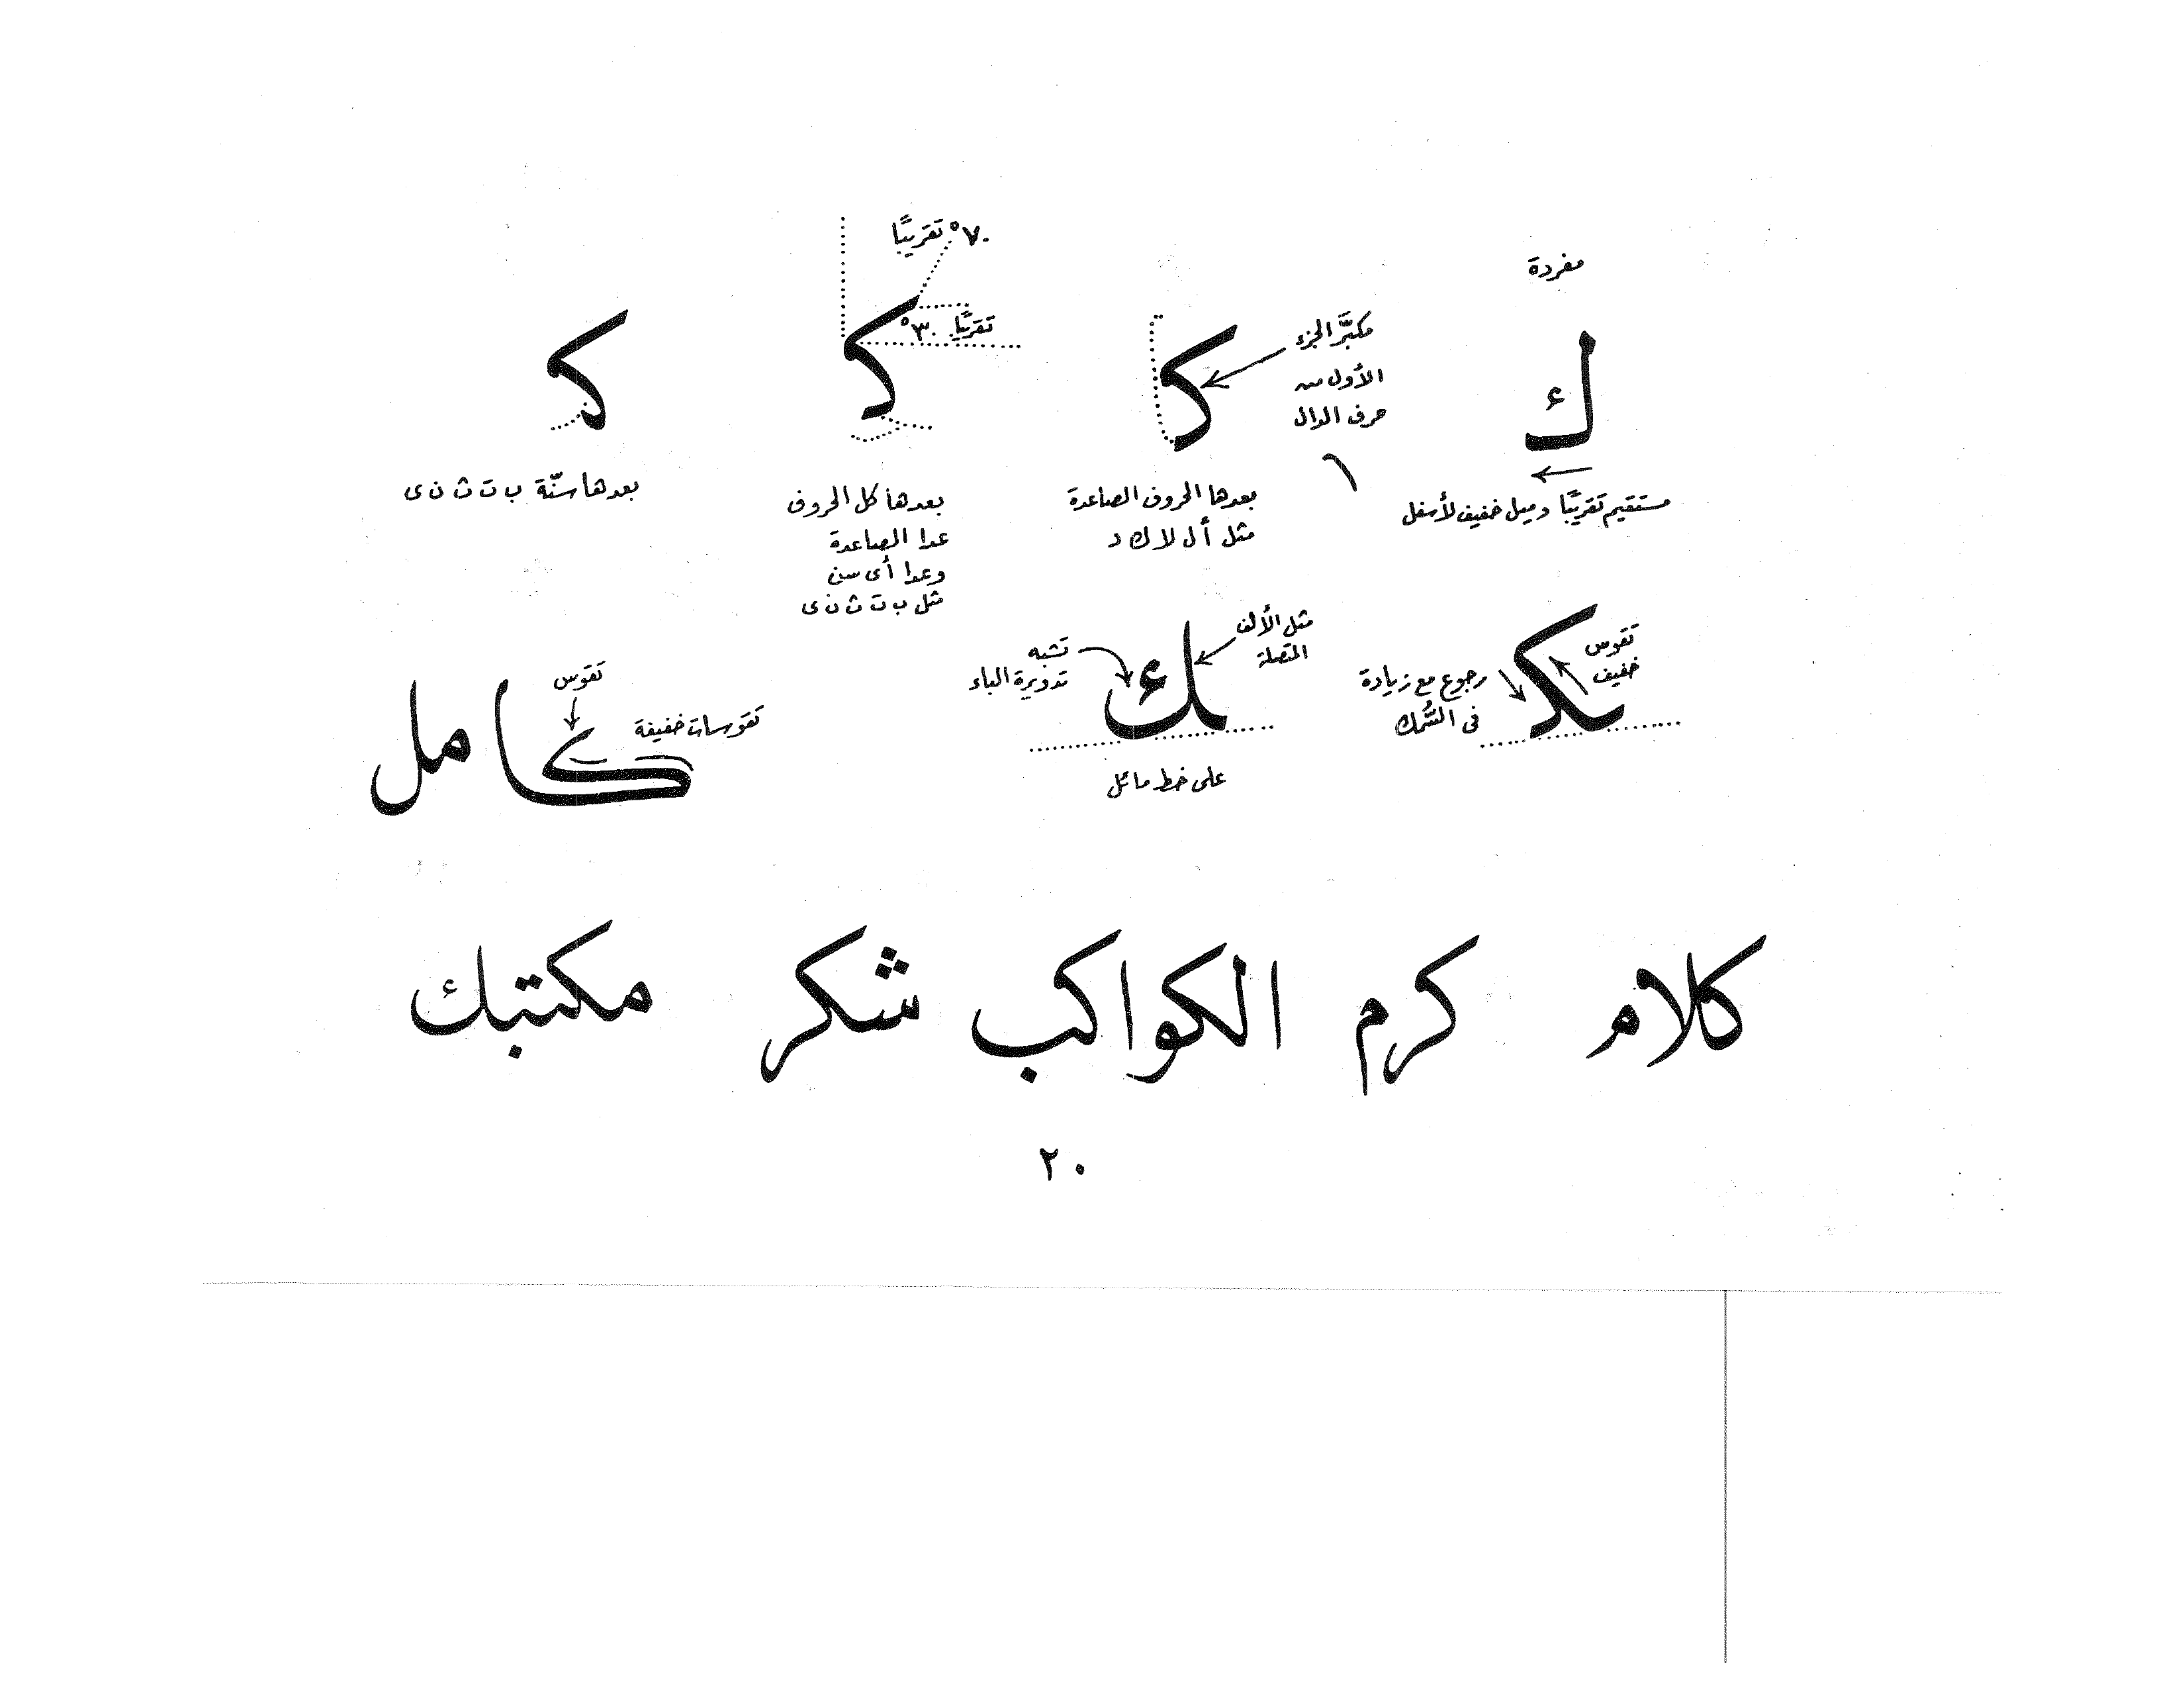 مفردة
ك
مستقيم تقريبًا وميل خفيف لأسفل
مكبَّر الجزء
الأول من
حرف الدال
كـ
بعدها الحروف الصاعدة
مثل أ ل لا ك د
٧٠° تقريبًا
تقريبًا ٣٠°
كـ
بعدها كل الحروف
عدا الصاعدة
وعدا أى سن
مثل ب ت ث ن ى
كـ
بعدها سنّة ب ت ث ن ى
تقوس
خفيف
ـكـ
رجوع مع زيادة
فى السُّمك
مثل الألف
المتصلة
ـك
تشبه
تدويرة الباء
على خط مائل
تقوس
تقوسات خفيفة
كامل
كلام كرم الكواكب شكر مكتبك
٢٠